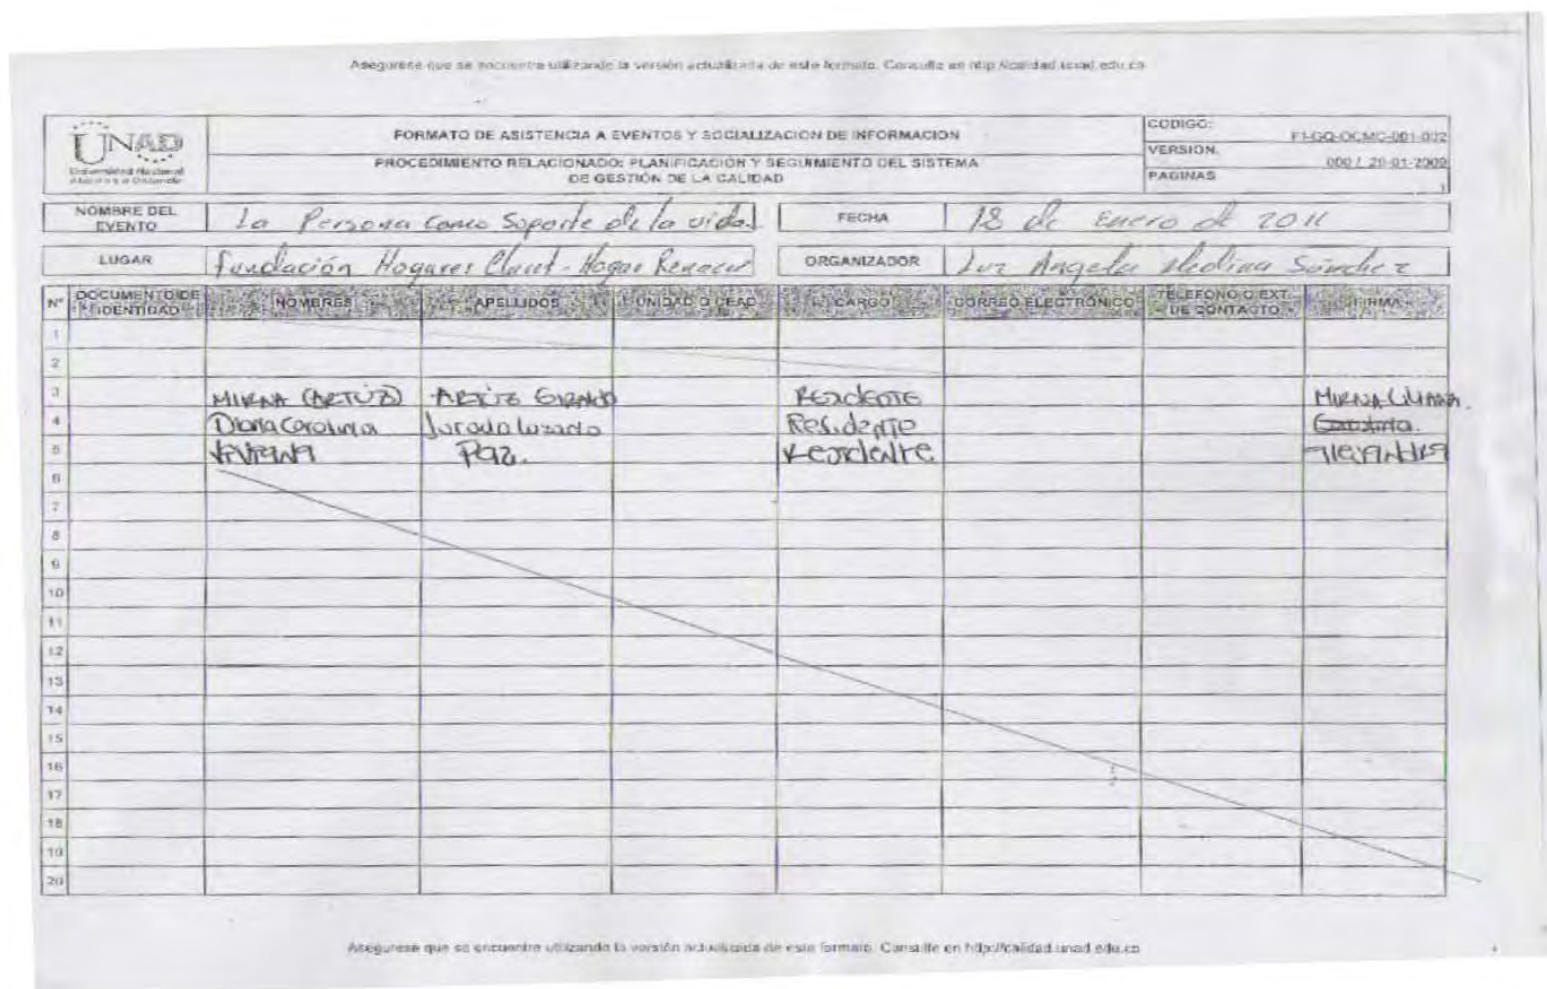 Asegurese que se encuentra utilizando la versión actualizada de este formato. Consulte en http://calidad.unad.edu.co
UNAD
Universidad Nacional
Abierta y a Distancia
FORMATO DE ASISTENCIA A EVENTOS Y SOCIALIZACION DE INFORMACION
PROCEDIMIENTO RELACIONADO: PLANIFICACIÓN Y SEGUIMIENTO DEL SISTEMA
DE GESTIÓN DE LA CALIDAD
CODIGO:
FI-GQ-OCMC-001-002
VERSION.
000 / 20-01-2009
PAGINAS
1
NOMBRE DEL
EVENTO
La Persona como Soporte de la vida.
FECHA
18 de Enero de 2011
LUGAR
Fundación Hogares Claret - Hogar Renacer
ORGANIZADOR
Luz Angela Medina Sánchez
N° DOCUMENTO DE IDENTIDAD NOMBRES APELLIDOS UNIDAD O CEAD CARGO CORREO ELECTRÓNICO TELEFONO O EXT. DE CONTACTO FIRMA
1
2
3 MIRNA Residente MIRNA LILIANA.
4 Diana Carolina Jurado Lozado Residente Carolina.
5 VIVIANA Paz. Residente
6
7
8
9
10
11
12
13
14
15
16
17
18
19
20
Asegurese que se encuentra utilizando la versión actualizada de este formato. Consulte en http://calidad.unad.edu.co